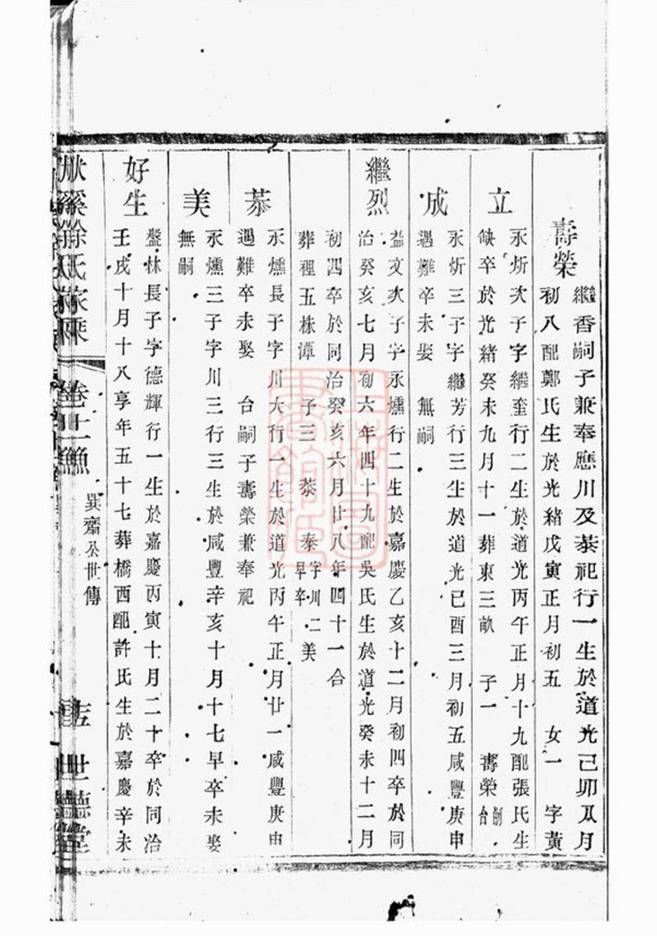 壽榮
繼香嗣子兼奉應川及恭祀行一生於道光己卯瓜月
初八配鄭氏生於光緒戊寅正月初五 女一 字黃
立
永炘次子字繼奎行二生於道光丙午正月十九配張氏生
缺卒於光緒癸未九月十一葬東三畝 子一 壽榮嗣台
成
永炘三子字繼芳行三生於道光己酉三月初五咸豐庚申
遇難卒未娶 無嗣
繼烈
益文次子字永燻行二生於嘉慶乙亥十二月初四卒於同
治癸亥七月初六年四十九配吳氏生於道光癸未十二月
初四卒於同治癸亥六月廿八年四十一合
葬裡五株潭 子三 恭 泰字川二早卒 美
恭
永燻長子字川大行一生於道光丙午正月廿一咸豐庚申
遇難卒未娶 台嗣子壽榮兼奉祀
美
永燻三子字川三行三生於咸豐辛亥十月十七早卒未娶
無嗣
好生
盤林長子字德輝行一生於嘉慶丙寅十月二十卒於同治
壬戌十月十八享年五十七葬橋西配許氏生於嘉慶辛未
溪徐氏家乘
卷十二
巽齋公世傳
世德堂